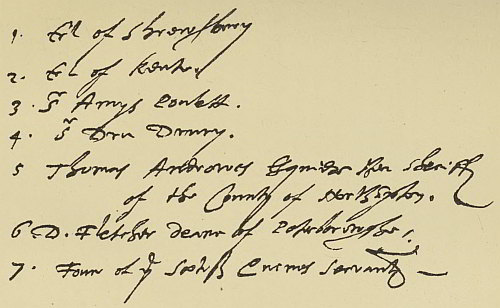 1. Erl of Shrewsbury
2. Erl of Kente.
3. Sr Amys Poulett.
4. Sr Dru Drury.
5 Thomas Androwes Esquier then Sheriff
of the County of Northapton.
6. D. Fletcher deane of Peterboroughe.
7. Foure of ye Scotish Quenes Servantes